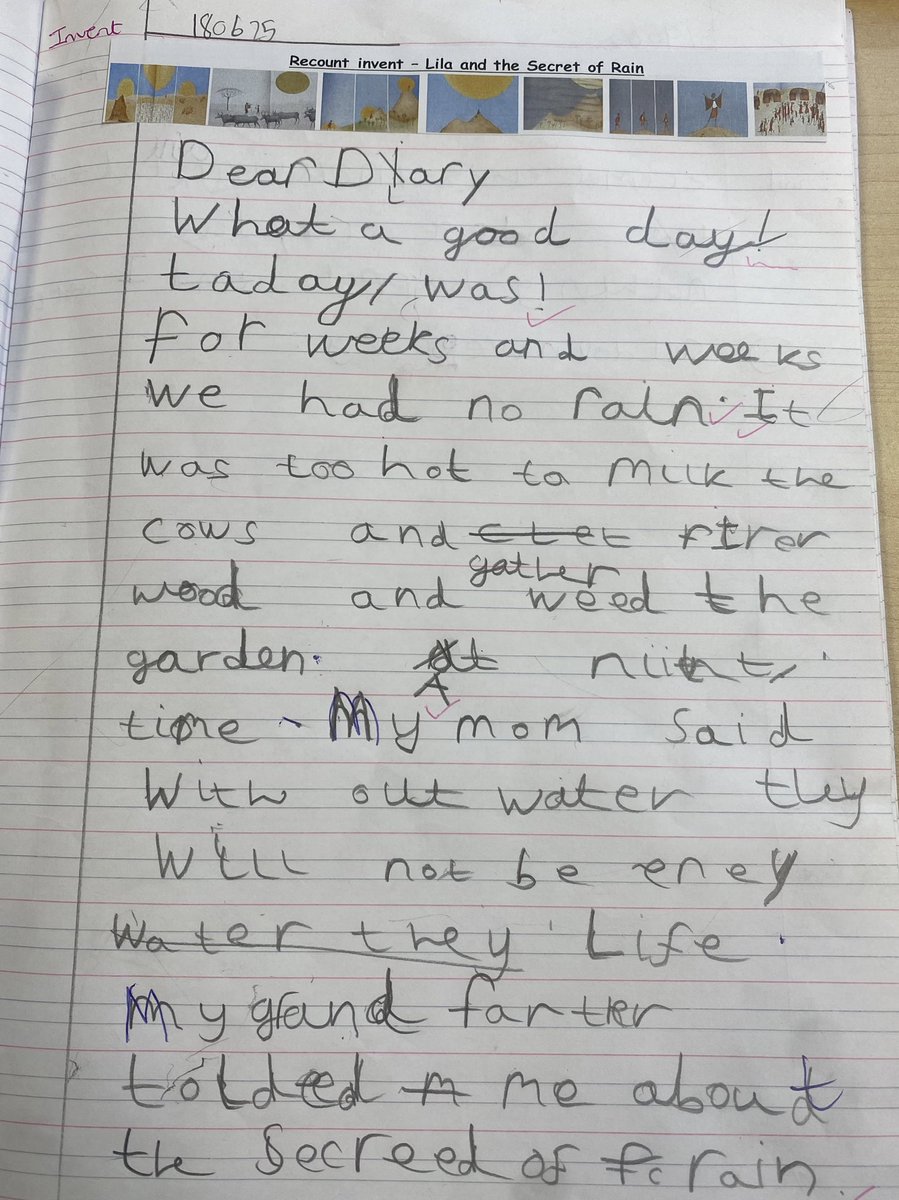 Invent
180625
Recount invent – Lila and the Secret of Rain
Dear Diary
What a good day!
taday, was!
for weeks and weeks
we had no rain. It
was too hot to milk the
cows and firer
gather
wood and weed the
garden. At
A
time. My mom said
With out water they
Will not be eney
water they Life.
My grand farther
tolded me about
the Secreed of rain